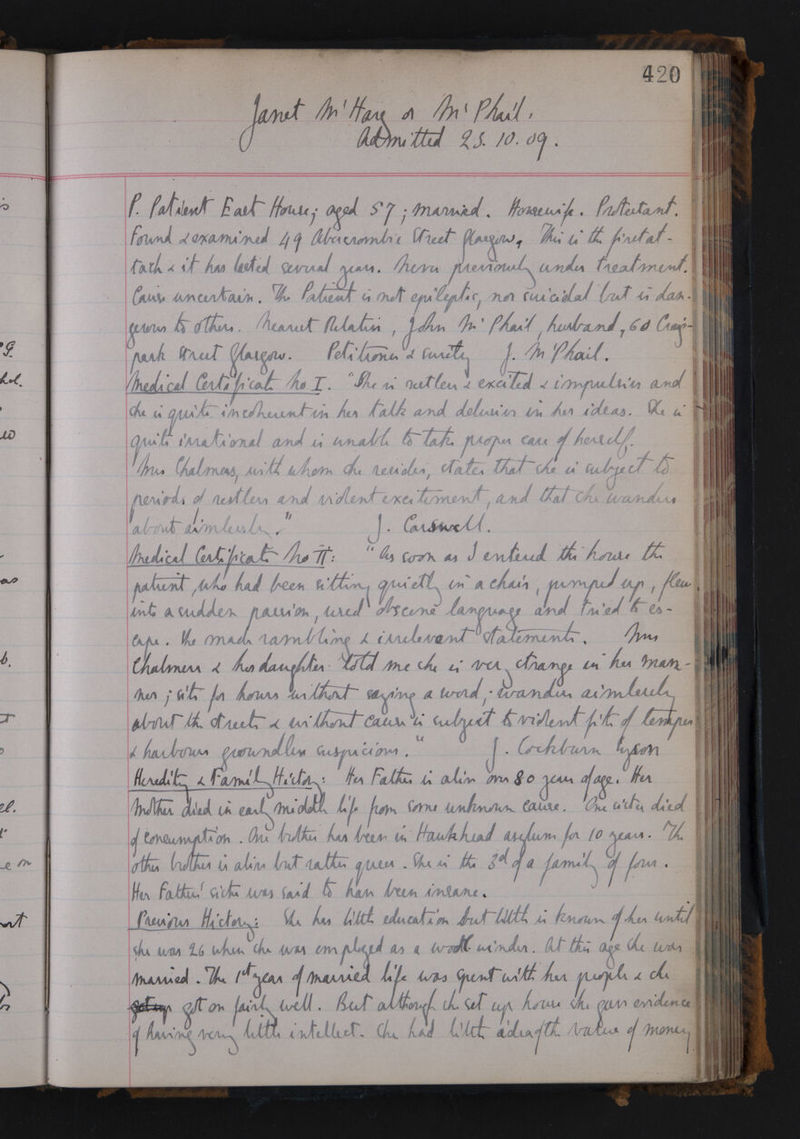 420
Janet McHarg or McPhail.
Admitted 25. 10. 09.
P. Patient East House; aged 57; married. Housewife. Protestant.
Found & examined 49 Abercrombie Street Glasgow. This is the first at-
tack & it has lasted several years. Never previously under treatment.
Cause uncertain. The Patient is not epileptic, nor suicidal but is dan-
gerous to others. Nearest Relative, John McPhail, husband, 60 Craig-
park Street Glasgow. Petitioner & Surety J. McPhail.
Medical Certificate No I. "She is restless & excited & impulsive and
she is quite incoherent in her talk and delusive in her ideas. She is
quite irrational and is unable to take proper care of herself.
Mrs Chalmers, with whom she resides, states that she is subject to
periods of restless and violent excitement, and that she wanders
about aimlessly." J. Carswell.
Medical Certificate No II: "As soon as I entered the house the
patient, who had been sitting quietly in a chair, jumped up, flew
into a sudden passion, used obscene language and tried to es-
cape. She made rambling & irrelevant statements. Mrs
Chalmers & her daughter told me she is very strange in her man-
ner; sits for hours without saying a word; wanders aimlessly
about the streets & without cause is subject to violent fits of temper
& harbours groundless suspicions." J. Cockburn Syson
Heredity & Family History: Her Father is alive over 80 years of age. Her
Mother died in early middle life from some unknown cause. One sister died
of consumption. One brother has been in Hawkhead asylum for 10 years. The
other brother is alive but rather queer. She is the 3d of a family of four.
Her Father's sister was said to have been insane.
Previous History: She has little education but little is known of her until
she was 26 when she was employed as a woollen winder. At this age she was
married. The 1st year of married life was spent with her people & she
got on fairly well. But although she set up house she gave evidence
of having very little intellect. She had little idea of the value of money